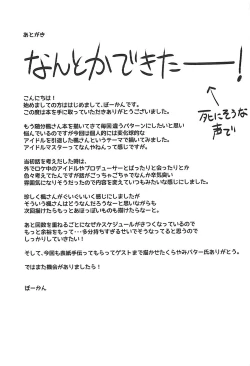 あとがき
なんとかできたー！
死にそうな
声で
こんにちは！
始めましての方ははじめまして、ぼーかんです。
この度は本を手に取っていただきありがとうございました。
もう随分楓さん本を描いてきて毎回違うパターンにしたいと思い
悩んでいるのですが今回は個人的には変化球的な
アイドルを引退した楓さんというテーマで描いてみました。
アイドルマスターってなんやねんって感じですが。
当初話を考えだした時は、
外でロケ中のアイドルやプロデューサーとばったりと会ったりとか
色々考えてたんですが話がごっちゃごちゃでなんか辛気臭い
雰囲気になりそうだったので内容を変えていつもみたいな感じにしました。
珍しく楓さんがぐいぐいいく感じにしましたが
そういう楓さんはどうだったかなーと思いながらも
次回描けたらもっとあほっぽいものも描けたらなーと。
あと回数を重ねるごとになぜかスケジュールがきつくなっているので
もっと余裕をもって・・・多分持ちすぎてだらだらそうなってると思うので
しっかりしていきたい！
そして、今回も表紙手伝ってもらってゲストまで描かせたくらやみバター氏ありがとう。
ではまた機会がありましたら！
ぼーかん